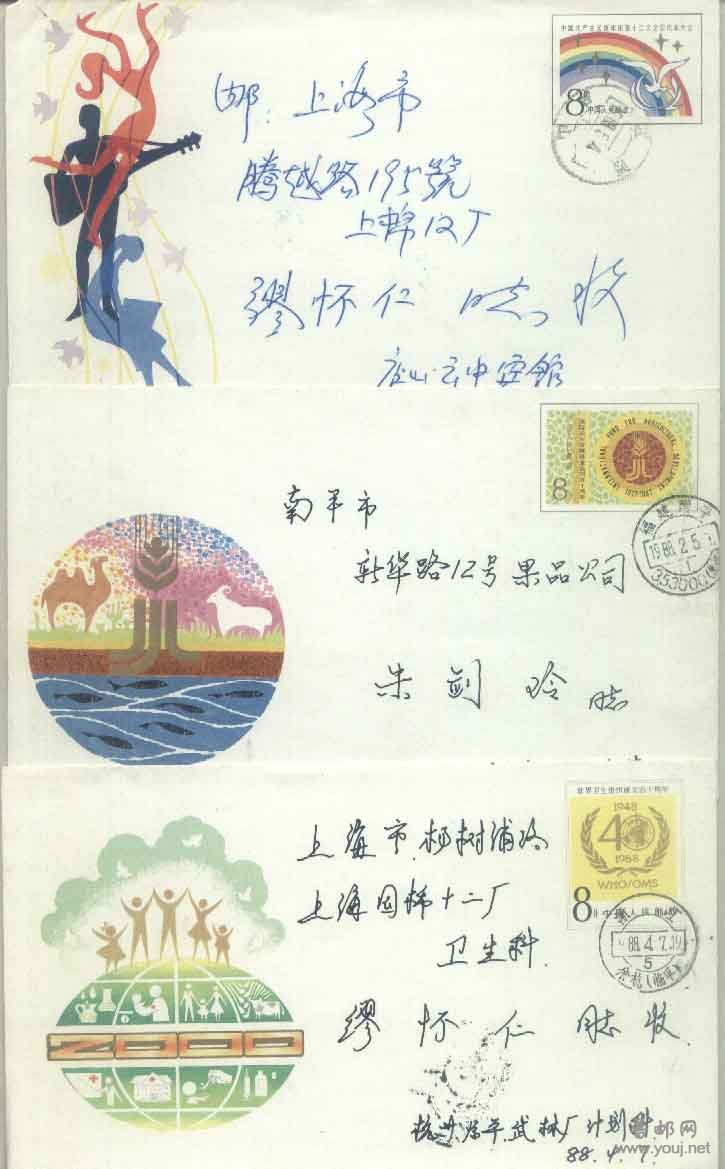 中国共产主义青年团第十二次全国代表大会
8分 中国人民邮政
邮:上海市
腾越路195號
上棉12厂
缪怀仁 同志 收
庐山云中宾馆
INTERNATIONAL FUND FOR AGRICULTURAL DEVELOPMENT
8
南平市
新华路12号果品公司
朱剑玲 同志
福建南平
1988.2.5
353000
世界卫生组织成立四十周年
1948
40
1988
WHO/OMS
8分 中国人民邮政
上海市杨树浦路
上海国棉十二厂
卫生科
缪怀仁 同志 收
88.4.7.19
5
余杭(临平)
2000
杭州临平武林厂计划科
88.4.7.
邮网
www.youj.net